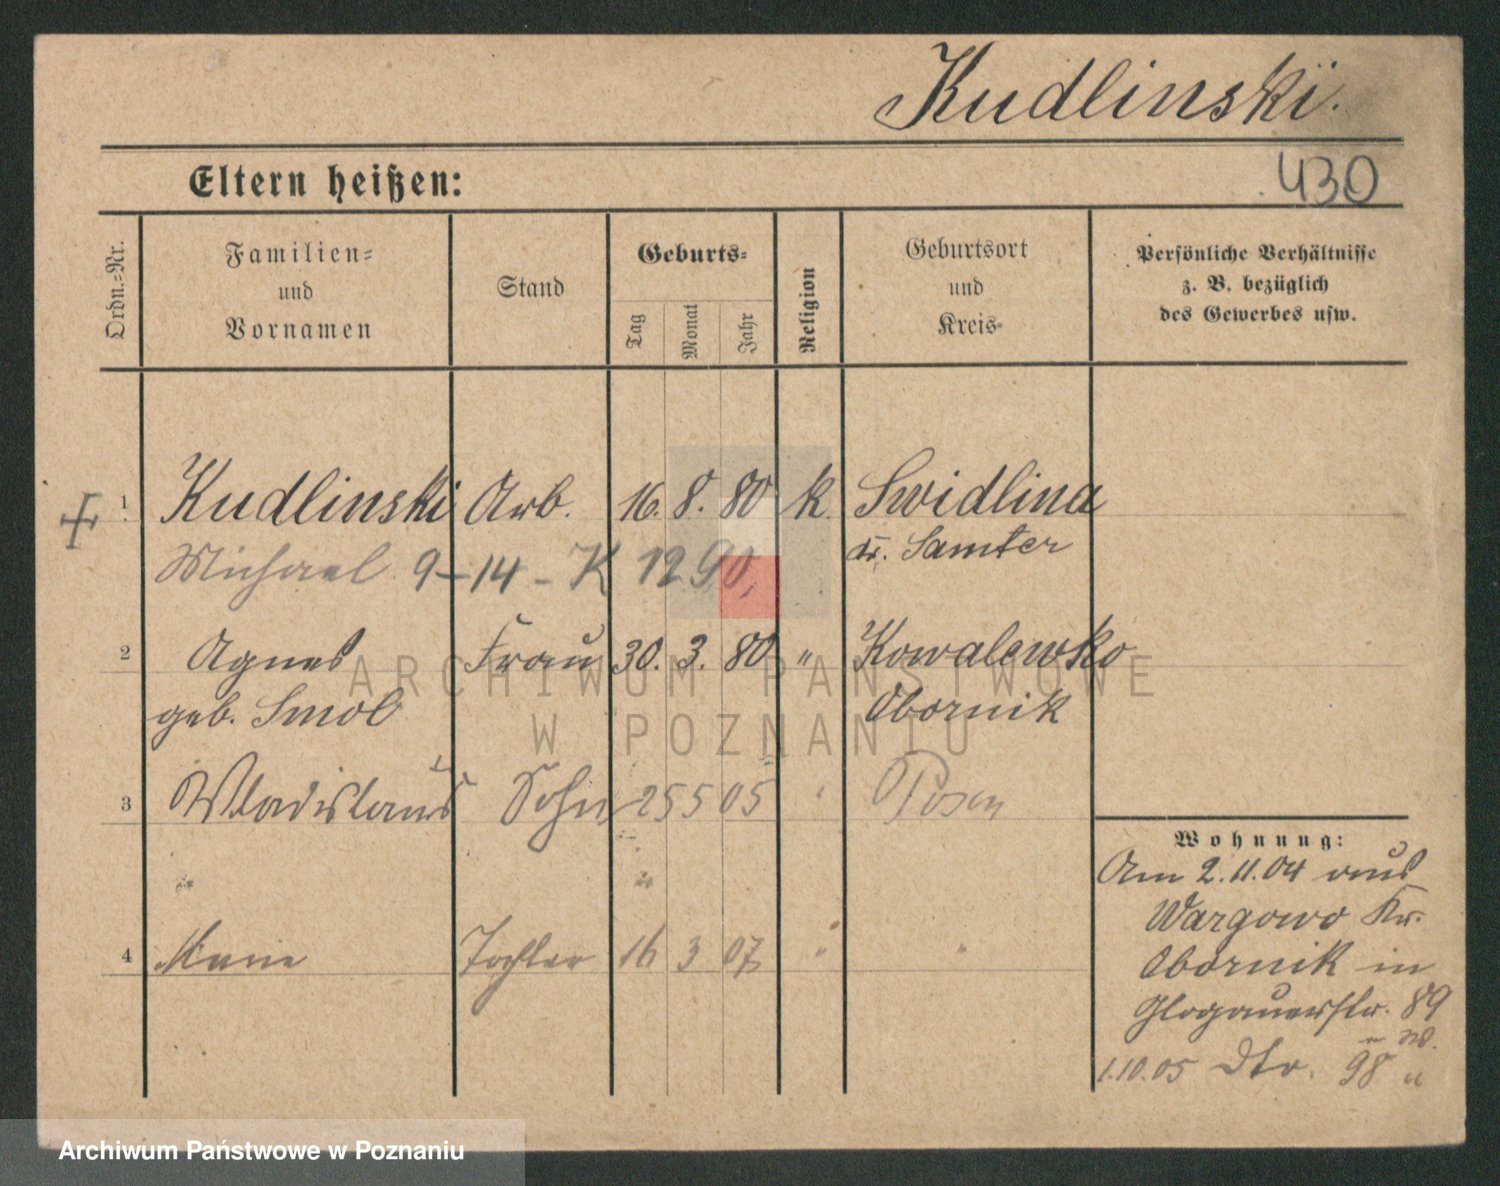 Kudlinski.
Eltern heißen:
430
Ordn.-Nr.
Familien-
und
Vornamen
Stand
Geburts-
Tag
Monat
Jahr
Religion
Geburtsort
und
Kreis-
Persönliche Verhältnisse
z. B. bezüglich
des Gewerbes usw.
1 Kudlinski Arb. 16. 8. 80 k Swidlina
Michael 9-14 - K 1290, Kr. Samter
2 Agnes Frau 30. 3. 80 " Kowalewko
geb. Smol Obornik
3 Wladislaus Sohn 25 5 05 " Posen
4 Marie Tochter 16 3 07 " "
Wohnung:
Am 2.11.04 aus
Wargowo Kr.
Obornik in
Glogauerstr. 89
1.10.05 dto. 98 "
ARCHIWUM PAŃSTWOWE
W POZNANIU
Archiwum Państwowe w Poznaniu